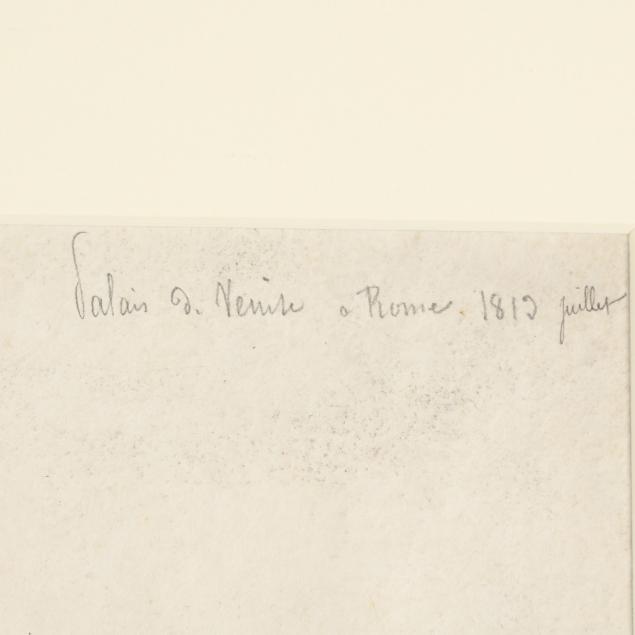 Palais de Venise a Rome. 1812 juillet